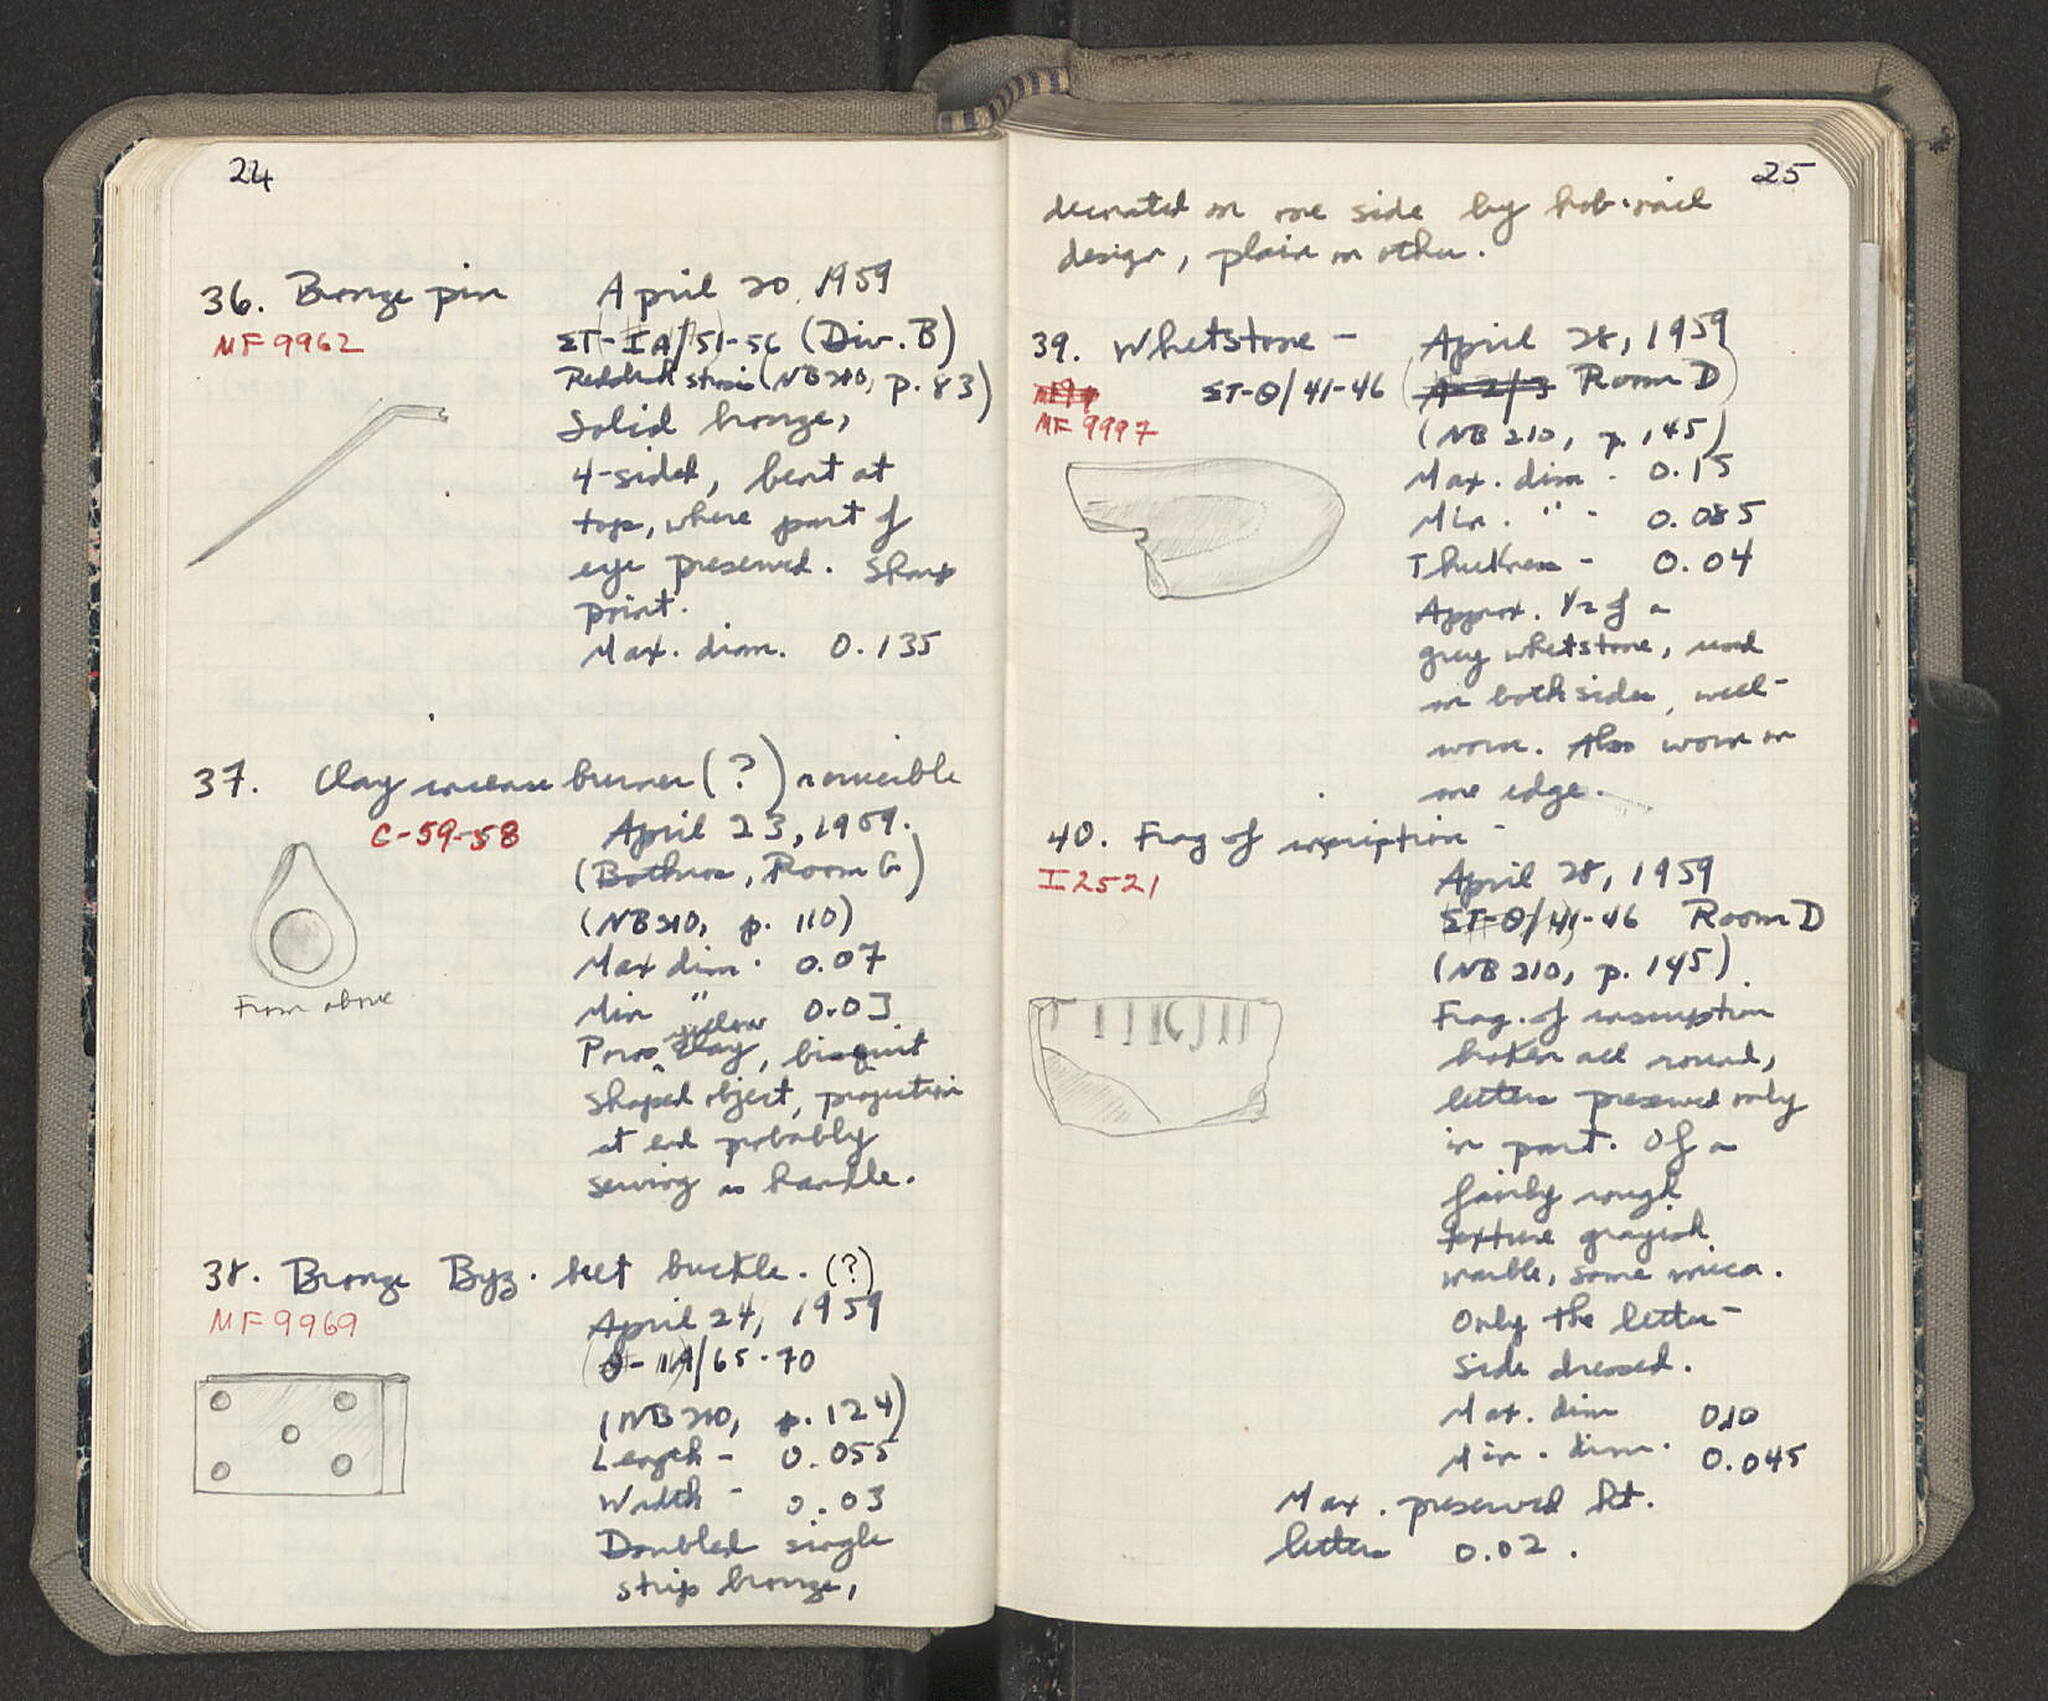 24
36. Bronze pin April 20, 1959
MF 9962
ΣT-IA/51-56 (Div. B)
Reddish strosis (NB 210, p. 83)
Solid bronze,
4-sided, bent at
top, where part of
eye preserved. Sharp
point.
Max. dim. 0.135
37. Clay incense burner (?) or crucible
C-59-58
April 23, 1959.
(Bothros, Room G)
(NB 210, p. 110)
Max dim. 0.07
Min " 0.03
From above
yellow
Poros clay, bisquit
shaped object, projection
at end probably
serving as handle.
38. Bronze Byz. belt buckle. (?)
MF 9969
April 24, 1959
(Θ-IIA/65-70
(NB 210, p. 124)
Length - 0.055
Width - 0.03
Doubled single
strip bronze,
25
decorated on one side by hob-nail
design, plain on other.
39. Whetstone - April 28, 1959
ΣT-Θ/41-46 (A-2/3 Room D)
MF 9997
(NB 210, p. 145)
Max. dim. 0.15
Min. " - 0.085
Thickness - 0.04
Approx. 1/2 of a
grey whetstone, used
on both sides, well-
worn. Also worn on
one edge.
40. Frag of inscription -
I 2521
April 28, 1959
ΣT-Θ/41-46 Room D
(NB 210, p. 145)
Frag. of inscription
broken all round,
letters preserved only
in part. Of a
fairly rough
texture grayish
marble, some mica.
Only the letter-
side dressed.
Max. dim 0.10
Min. dim. 0.045
Max. preserved ht.
letters 0.02.